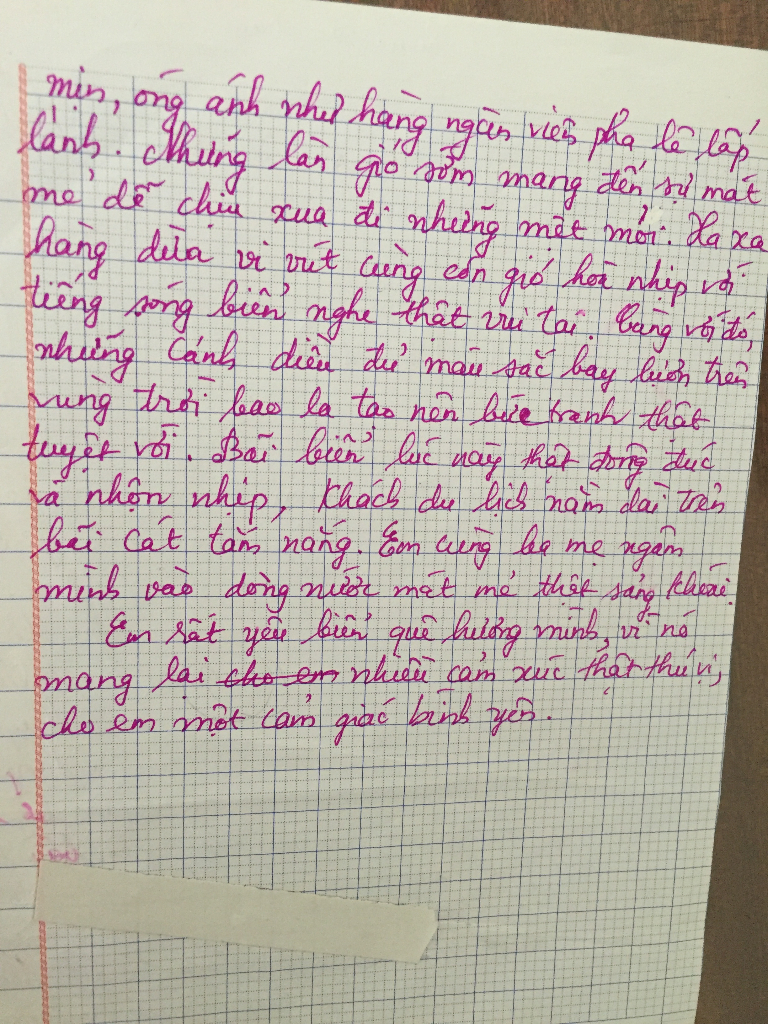 mịn, óng ánh như hàng ngàn viên pha lê lấp
lánh. Những làn gió sớm mang đến sự mát
mẻ dễ chịu xua đi những mệt mỏi. Xa xa
hàng dừa vi vút cùng cơn gió hoà nhịp với
tiếng sóng biển nghe thật vui tai. Cùng với đó,
những cánh diều đủ màu sắc bay lượn trên
vùng trời bao la tạo nên bức tranh thật
tuyệt vời. Bãi biển lúc này thật đông đúc
và nhộn nhịp, khách du lịch nằm dài trên
bãi cát tắm nắng. Em cùng ba mẹ ngâm
mình vào dòng nước mát mẻ thật sảng khoái.
Em rất yêu biển quê hương mình, vì nó
mang lại cho em nhiều cảm xúc thật thú vị,
cho em một cảm giác bình yên.